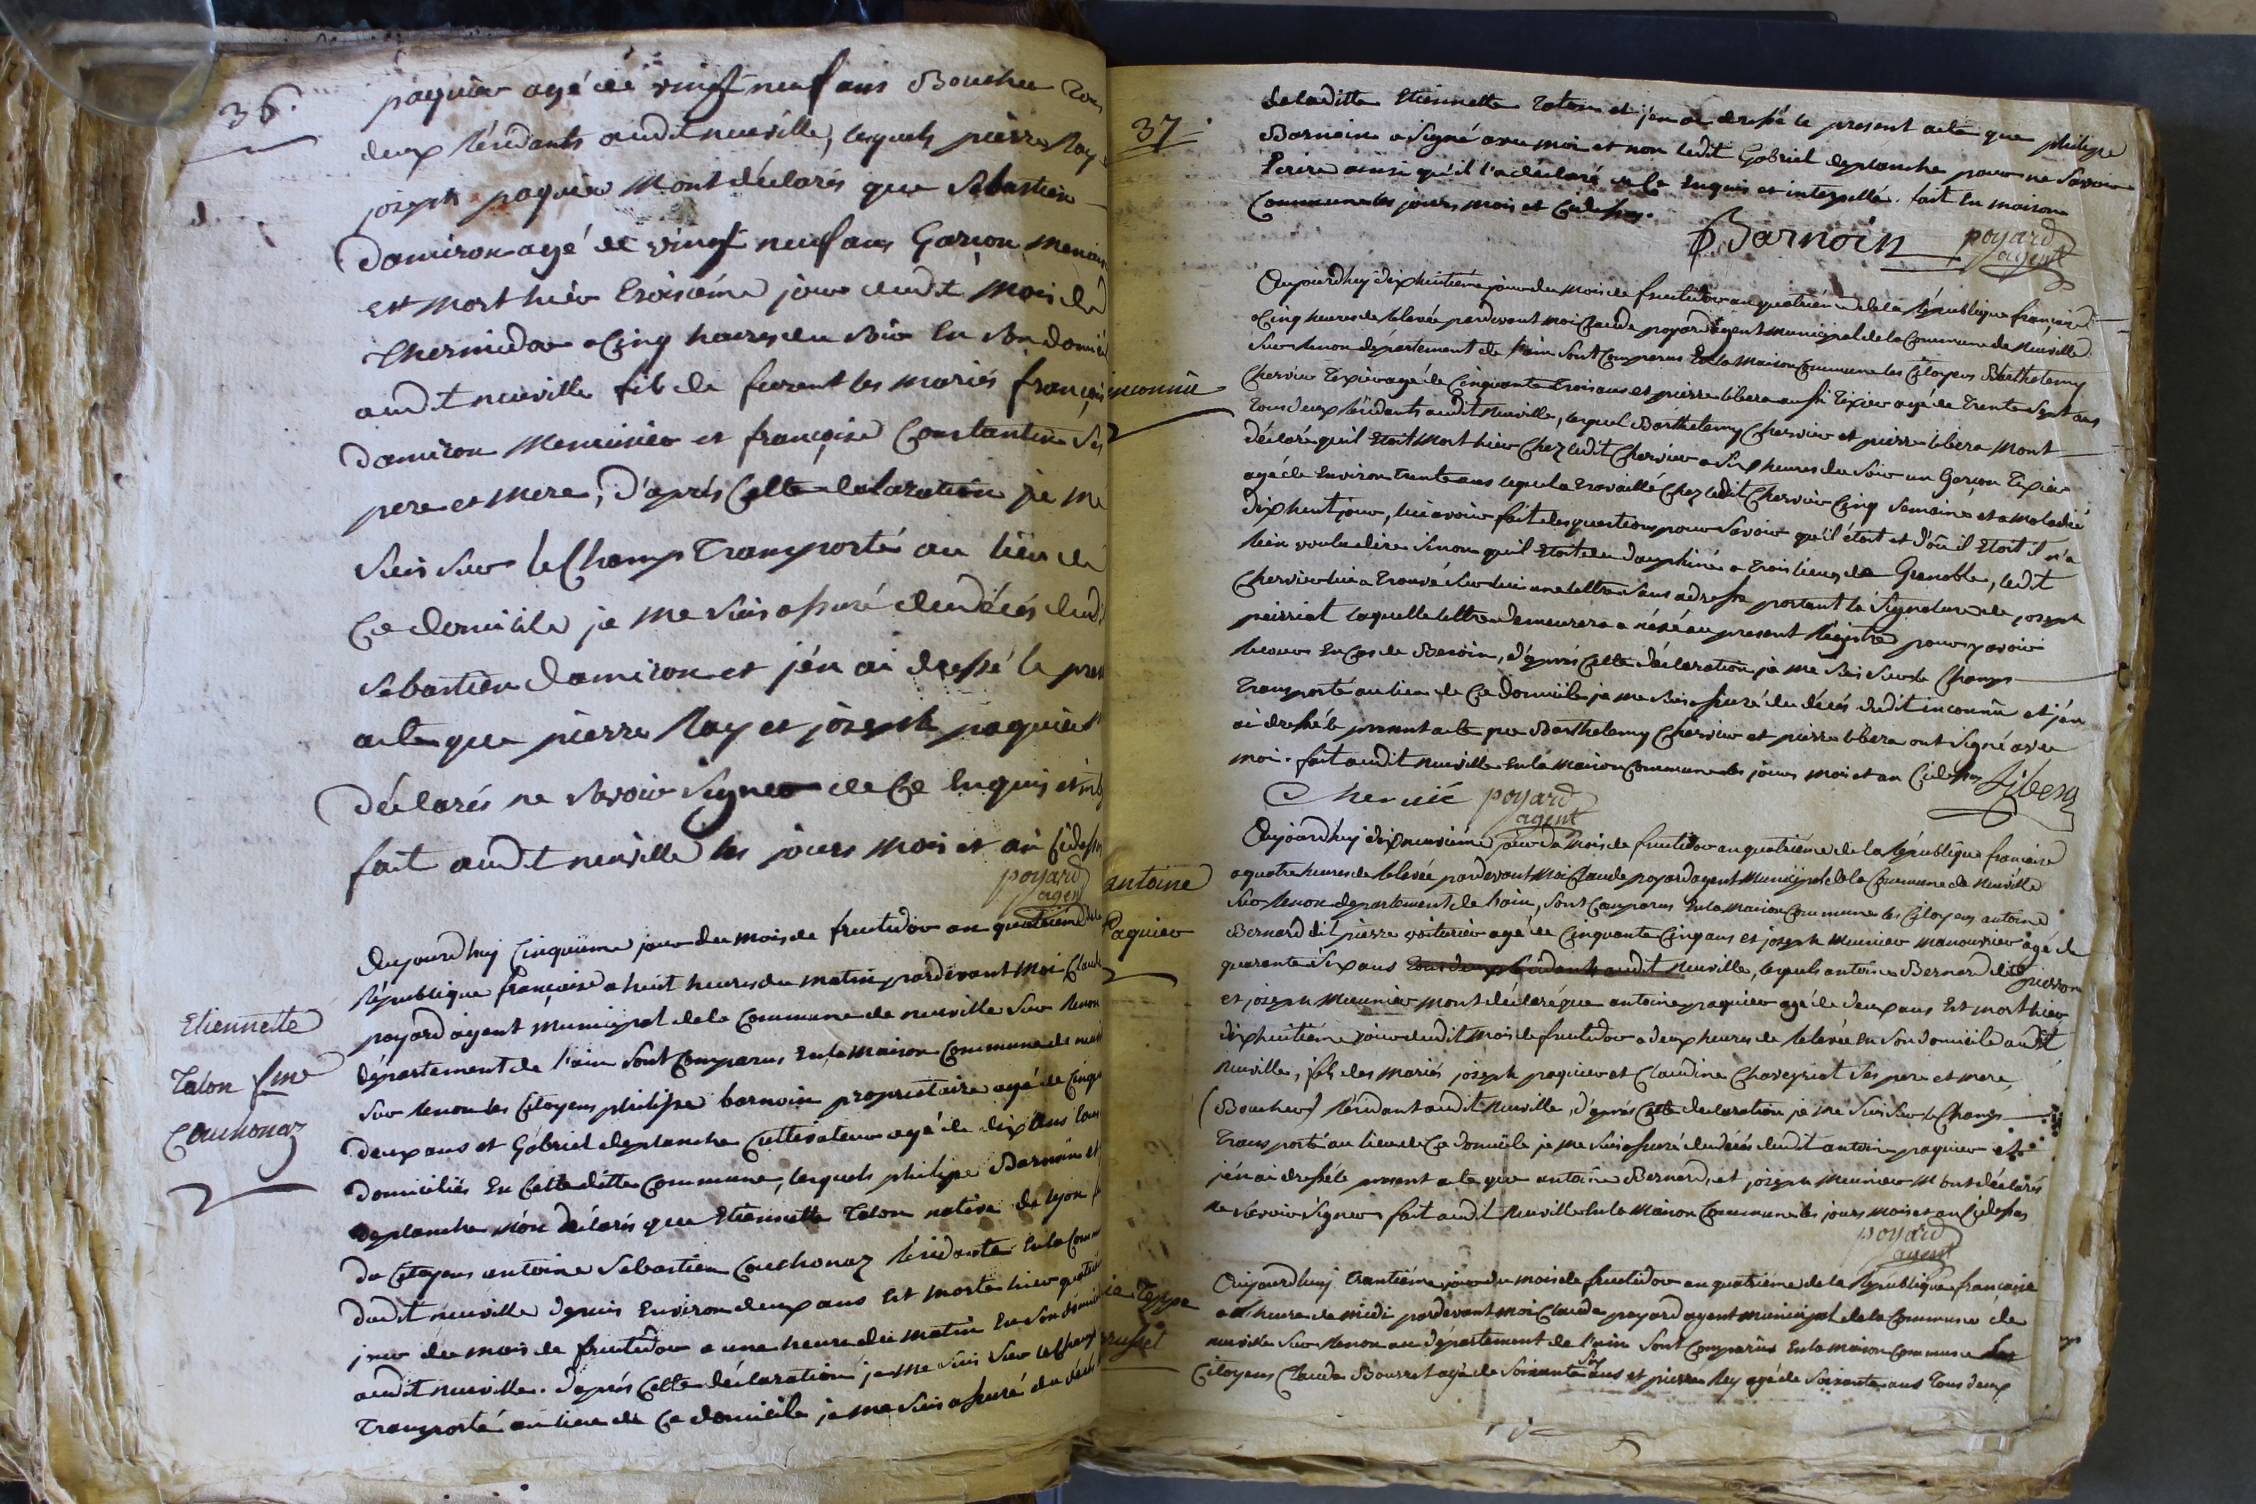 36.
paquier agé de vingt neuf ans Boucher Tous
deux Résidants audit neuville, lesquels pierre Ray
joseph paquier Mont déclarés que Sebastien
Damiron agé de vingt neuf ans Garçon Menui
est Mort hièr troisième jour dudit Mois de
Thermidor a Cinq heures du soir En Son domici
audit neuville fils de furent les mariés françois
Damiron Menuisier et françoise Constantin Ses
pere et Mere, d'après Cette declaration je me
Suis Sur le Champ Transporté au lieu de
Ce domicile je me Suis assuré du décés dudi
Sebastien Damiron et j'en ai dressé le pres
acte que pierre Ray et joseph paquier
déclarés ne Savoir Signer de Ce Enquis et
fait audit neuville les jours Mois et an Cidessu
poyard
agent
Etiennette
Talon fme
Couchonaz
Aujourdhuj Cinquième jour du mois de fructidor an quatrième de la
République françoise a huit heures du matin pardevant moi Claude
poyard agent Municipal de la Commune de neuville Sur Renon
département de l'ain Sont Comparus En la Maison Commune de neuvi
Sur Renon les Citoyens philippe barnoin proprietaire agé de Cinqu
deux ans et Gabriel deplanche Cultivateur agé de dix ans tous
domiciliés En Cette ditte Commune, lesquels philipe Barnoin et
deplanche m'ont déclarés que Etiennette Talon native de lyon
du Citoyens antoine Sebastien Couchonaz Résidante En la Comm
dudit neuville depuis Environ deux ans Est morte hier quatri
jour du mois de fructidor a une heure du matin En Son domici
audit neuville. d'après Cette déclaration je me Suis Sur le Champ
Transporté au lieu de Ce domicile je me Suis assuré du décés
37.
de laditte Etiennette Talon et j'en ai dressé le present acte que philippe
Barnoin a Signé avec moi et non ledit Gabriel deplanche pour ne Savoir
Ecrire ainsi qu'il l'a déclaré de Ce Enquis et interpellé. fait En maison
Commune les jours mois et Cidessus.
Barnoin poyard
agent
inconnû
Aujourdhuj dixhuitieme jour du mois de fructidor an quatrième de la République françoise
a Cinq heures de Relevée pardevant moi Claude poyard agent Municipal de la Commune de Neuville
Sur Renon département de l'ain Sont Comparus En la Maison Commune les Citoyens Barthelemy
Chervier Tixier agé de Cinquante trois ans et pierre libera aussi Tixier agé de Trente Sept ans
Tous deux Résidants audit Neuville, lesquel Barthelemy Chervier et pierre libera Mont
déclaré qu'il Etoit Mort hier Chez ledit Chervier a Six heures du Soir un Garçon Tixier
agé de Environ trente ans lequel a travaillé Chez ledit Chervier Cinq Semaines et a Maladié
dix huit jour, lui avoir fait des questions pour Savoir qu'il étoit et d'où il Etoit il n'a
Rien voulu dire Sinon qu'il Etoit du dauphiné a trois lieues de Grenoble, ledit
Chervier lui a Trouvé Sur lui une lettre Sans adresse portant la Signature de joseph
peirriat laquelle lettre demeurera anéxé au present Régistre pour y avoir
Recour En Cas de Besoin, d'après Cette déclaration je me Suis Sur le Champ
Transporté au lieu de Ce domicile je me Suis assuré du décés dudit inconnû et j'en
ai dressé le present acte que Barthelemy Chervier et pierre libera ont Signé avec
moi. fait audit Neuville En la Maison Commune les jours mois et an Cidessus Libera
Chervié poyard
agent
antoine
Paquier
Aujourdhuj dixneuvième jour du Mois de fructidor an quatrième de la République françoise
a quatre heures de Relevée pardevant Moi Claude poyard agent Municipal de la Commune de Neuville
Sur Renon département de l'ain, Sont Comparus En la Maison Commune les Citoyens antoine
Bernard dit pierre voiturier agé de Cinquante Cinq ans et joseph Munier manouvrier agé de
quarante Six ans Tous deux Résidants audit Neuville, lesquels antoine Bernard dit pierron
et joseph Meunier mont déclaré que antoine paquier agé de deux ans Est mort hier
dixhuitième jour dudit Mois de fructidor a deux heures de Relevée En Son domicile audit
Neuville, fils des mariés joseph paquier et Claudine Chaveyriat Ses pere et mere,
(Boucher) Résidant audit Neuville, d'après Cette declaration je me Suis Sur le Champ
Transporté au lieu de Ce domicile je me Suis assuré du décés dudit antoine paquier et
j'en ai dressé le present acte que antoine Bernard, et joseph Meunier Mont déclarés
ne Savoir Signer fait audit Neuville En la Maison Commune les jours mois et an Cidessus
poyard
agent
ie Teppe
Aujourdhuj trantième jour du mois de fructidor an quatrième de la République francaise
a heure de midi pardevant moi Claude poyard agent municipal de la Commune de
neuville Sur Renon au département de l'ain Sont Comparûs En la maison Commune les
Citoyens Claude Bourret agé de Soixante Six ans et pierre Rey agé de Soixante ans Tous deux